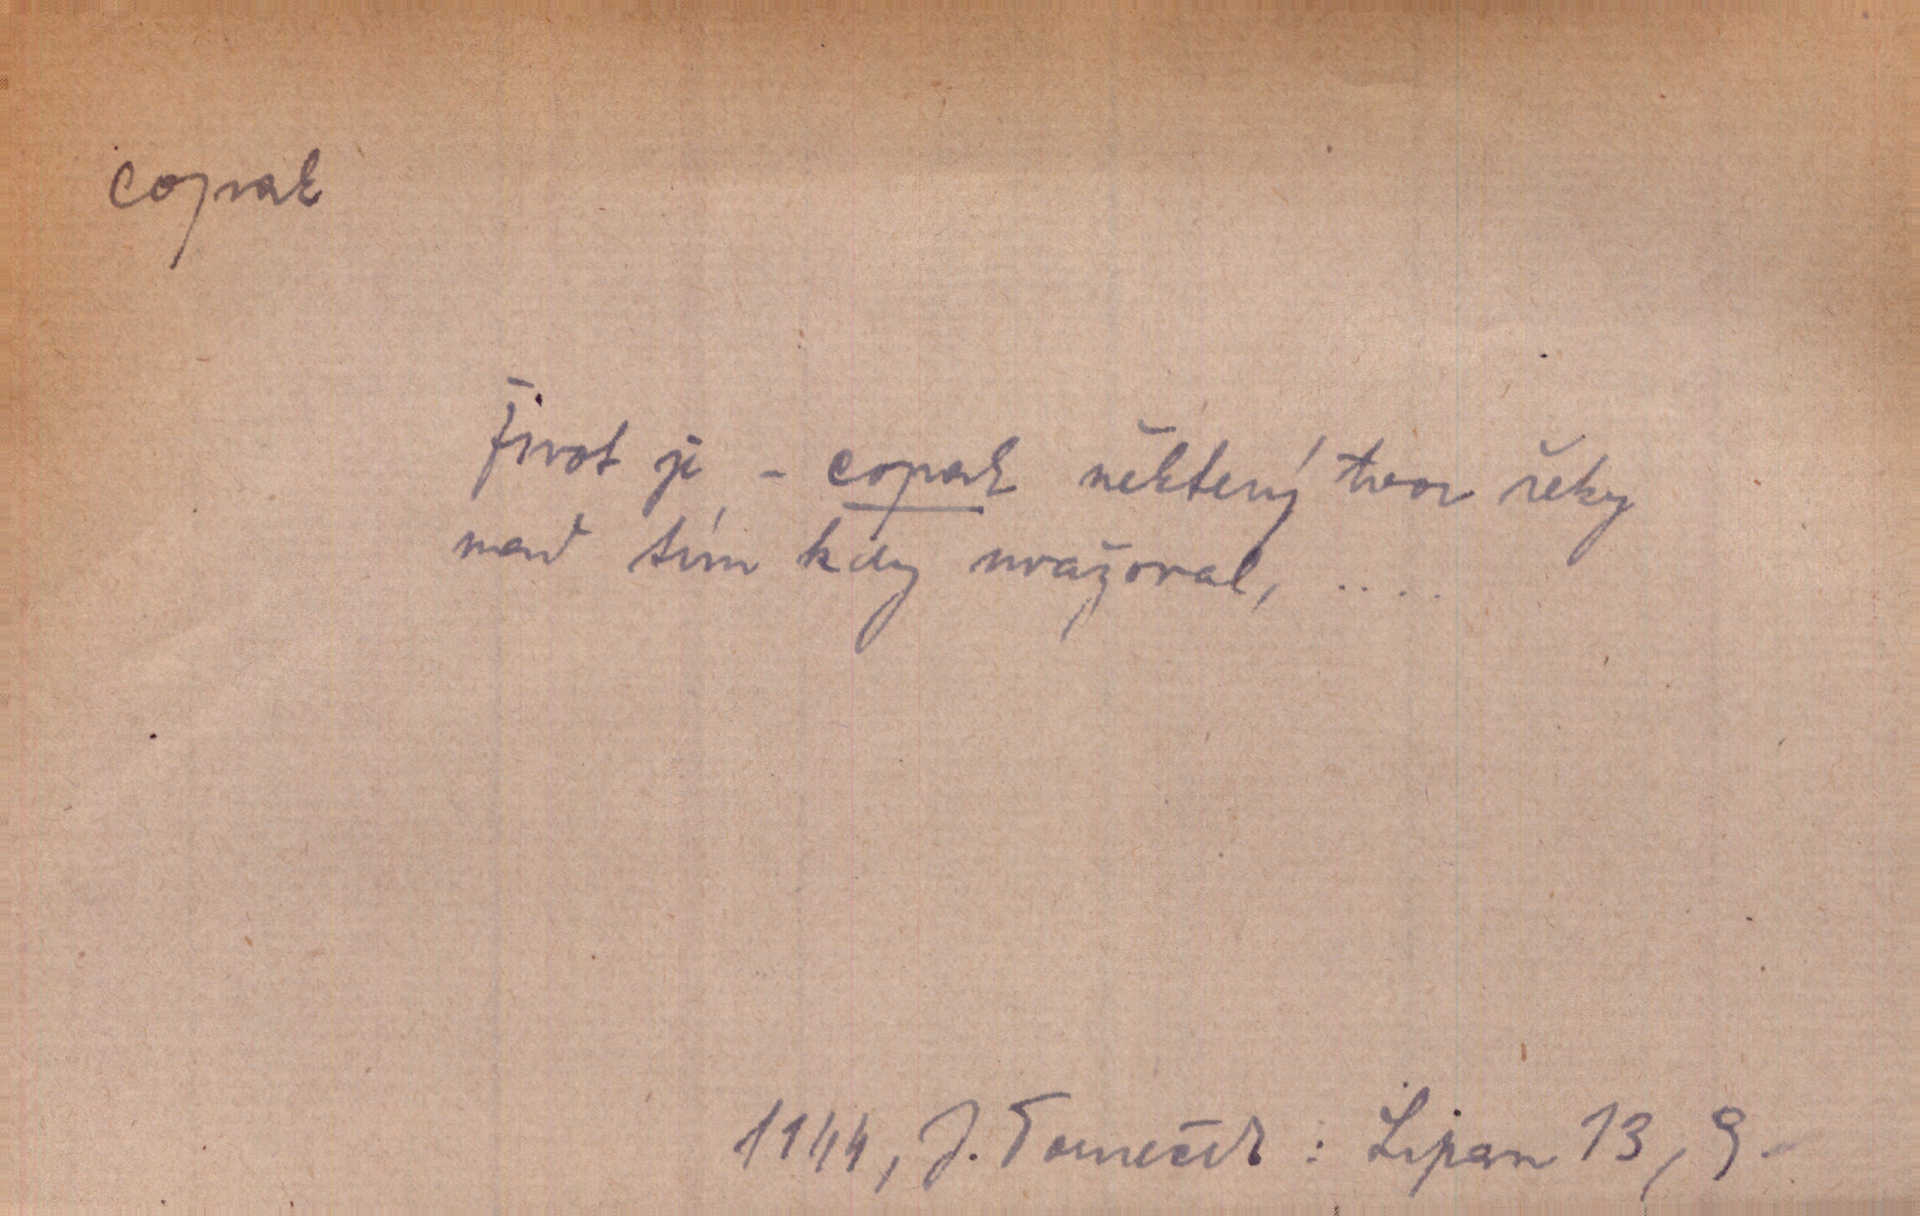 copak
Život je - copak některý tvor řeky
nad tím kdy uvažoval, ....
1944, J. Tomeček: Lipan 13, 9.